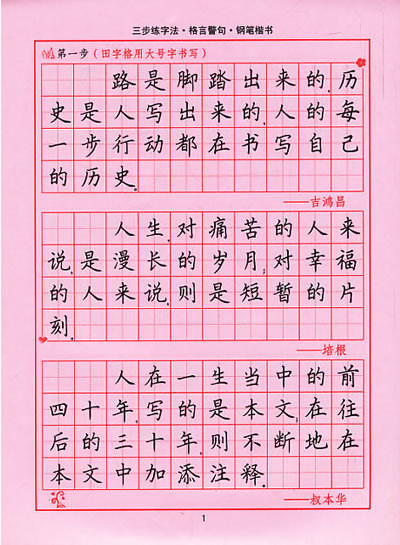 三步练字法·格言警句·钢笔楷书
第一步(田字格用大号字书写)
路是脚踏出来的,历
史是人写出来的,人的每
一步行动都在书写自己
的历史。
——吉鸿昌
人生,对痛苦的人来
说,是漫长的岁月;对幸福
的人来说,则是短暂的片
刻。
——培根
人在一生当中的前
四十年,写的是本文;在往
后的三十年,则不断地在
本文中加添注释。
——叔本华
1